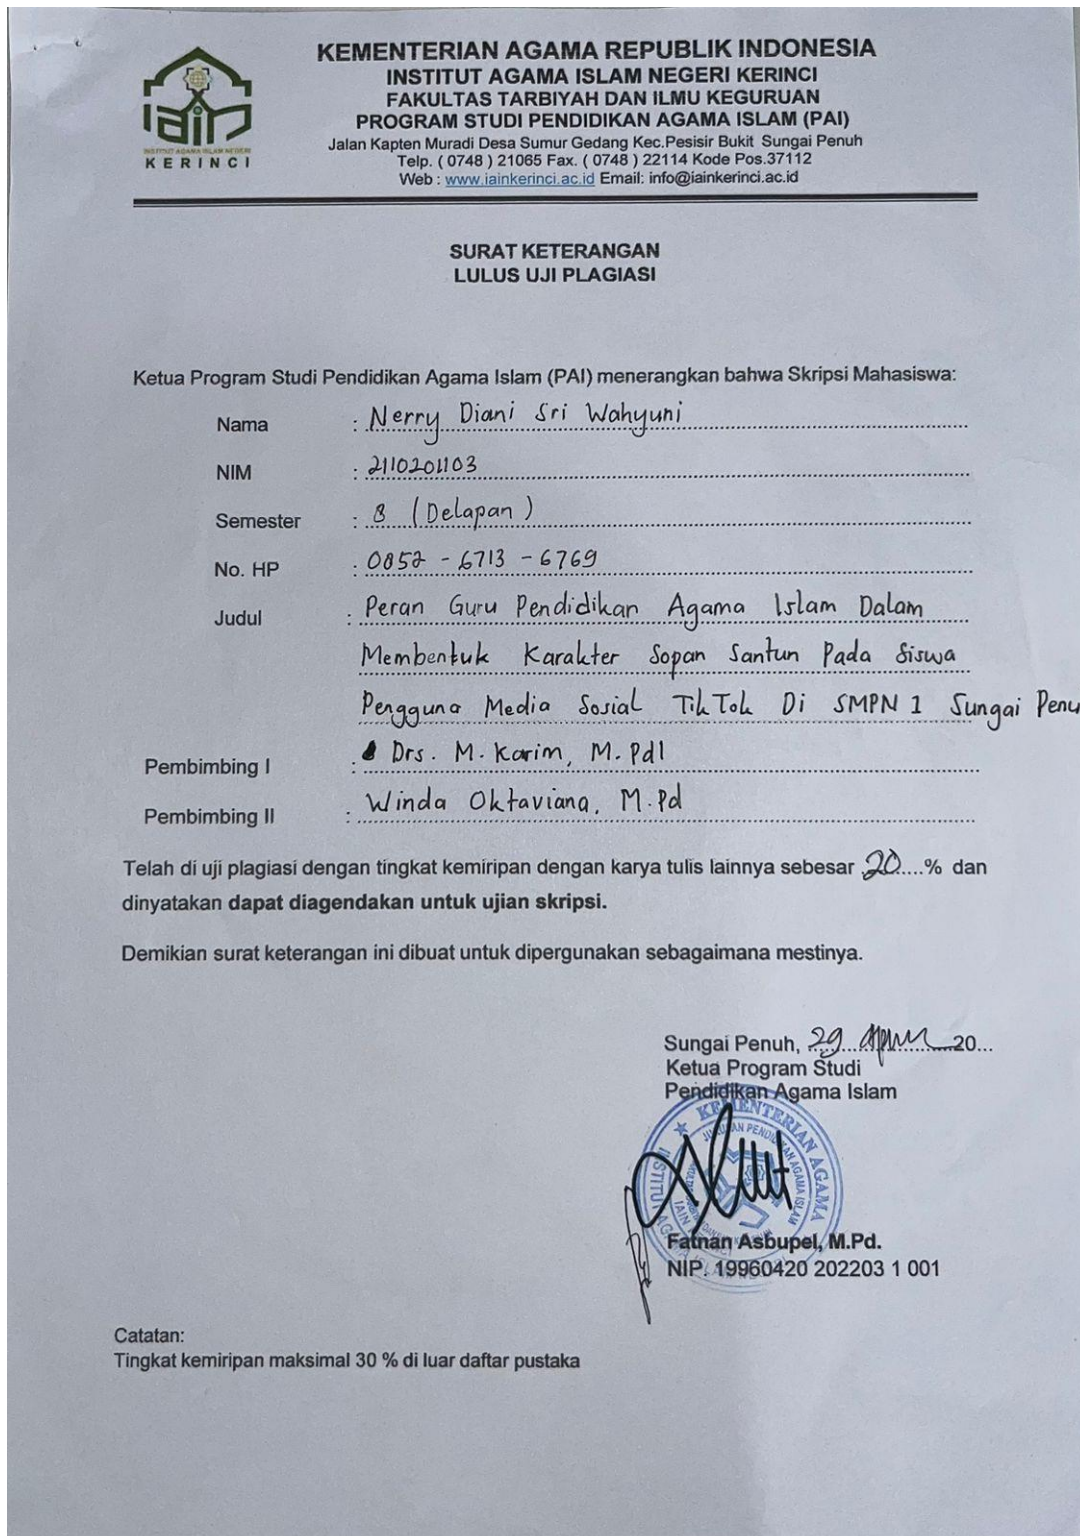 KEMENTERIAN AGAMA REPUBLIK INDONESIA
INSTITUT AGAMA ISLAM NEGERI KERINCI
FAKULTAS TARBIYAH DAN ILMU KEGURUAN
PROGRAM STUDI PENDIDIKAN AGAMA ISLAM (PAI)
Jalan Kapten Muradi Desa Sumur Gedang Kec.Pesisir Bukit Sungai Penuh
Telp. ( 0748 ) 21065 Fax. ( 0748 ) 22114 Kode Pos.37112
Web : www.iainkerinci.ac.id Email: info@iainkerinci.ac.id
iain
INSTITUT AGAMA ISLAM NEGERI
KERINCI
SURAT KETERANGAN
LULUS UJI PLAGIASI
Ketua Program Studi Pendidikan Agama Islam (PAI) menerangkan bahwa Skripsi Mahasiswa:
Nama : Nerry Diani Sri Wahyuni
NIM : 2110201103
Semester : 8 (Delapan)
No. HP : 0852 - 6713 - 6769
Judul : Peran Guru Pendidikan Agama Islam Dalam
Membentuk Karakter Sopan Santun Pada Siswa
Pengguna Media Sosial TikTok Di SMPN 1 Sungai Penu
Pembimbing I : Drs. M. Karim, M. PdI
Pembimbing II : Winda Oktaviana, M.Pd
Telah di uji plagiasi dengan tingkat kemiripan dengan karya tulis lainnya sebesar 20....% dan
dinyatakan dapat diagendakan untuk ujian skripsi.
Demikian surat keterangan ini dibuat untuk dipergunakan sebagaimana mestinya.
Sungai Penuh, 29 April 20...
Ketua Program Studi
Pendidikan Agama Islam
KEMENTERIAN AGAMA
INSTITUT AGAMA ISLAM
JURUSAN PENDIDIKAN AGAMA ISLAM
Fatnan Asbupel, M.Pd.
NIP. 19960420 202203 1 001
Catatan:
Tingkat kemiripan maksimal 30 % di luar daftar pustaka